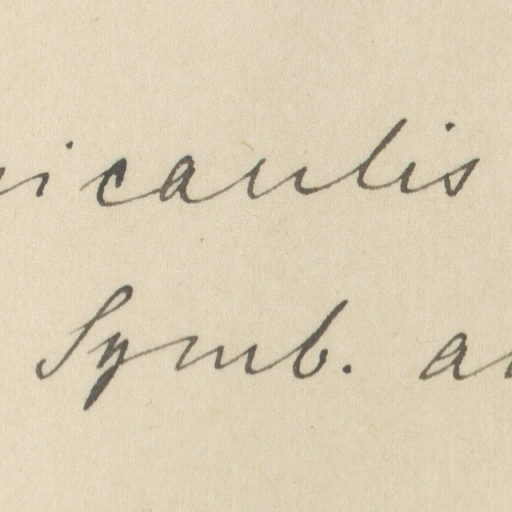 icaulis
Symb. a